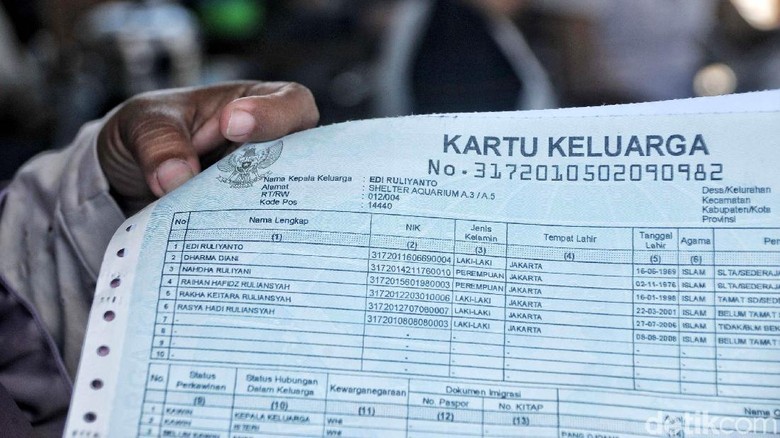 KARTU KELUARGA
No. 3172010502090982
Nama Kepala Keluarga : EDI RULIYANTO
Alamat : SHELTER AQUARIUM A.3 / A.5
RT/RW : 012/004
Kode Pos : 14440
Desa/Kelurahan
Kecamatan
Kabupaten/Kota
Provinsi
No Nama Lengkap NIK Jenis Kelamin Tempat Lahir Tanggal Lahir Agama
(1) (2) (3) (4) (5) (6)
1 EDI RULIYANTO 3172011606690004 LAKI-LAKI JAKARTA 16-06-1969 ISLAM SLTA/SEDERAJ
2 DHARMA DIANI 3172014211760010 PEREMPUAN JAKARTA 02-11-1976 ISLAM SLTA/SEDERAJ
3 NAHDHA RULIYANI 3172015601980003 PEREMPUAN JAKARTA 16-01-1998 ISLAM TAMAT SD/SEDE
4 RAIHAN HAFIDZ RULIANSYAH 3172012203010006 LAKI-LAKI JAKARTA 22-03-2001 ISLAM BELUM TAMAT
5 RAKHA KEITARA RULIANSYAH 3172012707060007 LAKI-LAKI JAKARTA 27-07-2006 ISLAM TIDAK/BLM
6 RASYA HADI RULIANSYAH 3172010808080003 LAKI-LAKI JAKARTA 08-08-2008 ISLAM BELUM TAMAT
7 - - - - - -
8 - - - - - -
9 - - - - - -
10 - - - - - -
No. Status Perkawinan Status Hubungan Dalam Keluarga Kewarganegaraan Dokumen Imigrasi
No. Paspor No. KITAP
(9) (10) (11) (12) (13)
1 KAWIN KEPALA KELUARGA WNI
2 KAWIN ISTERI
detikcom